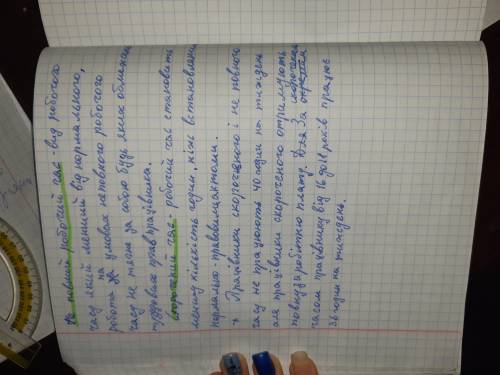 Не повний робочий час - вид робочого
часу який менший від нормального,
робота на умовах неповного робочого
часу не тягне за собою будь яких обмежен
трудових прав працівника.
скорочений час. робочий час становить
меншу кількість годин, ніж встановлени
нормально правовими актами.
Працівники скороченого і не повного
часу не працюють 40 годин на тиждень
але працівники скороченого отримують
повну заробітню плату. За скороченим
часом працівнику від 16 до 18 років працює
36 годин на тиждень.